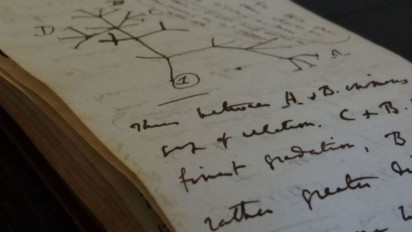 B
D
C
A
1
Thus between A. & B. immens
gap of relation. C & B.
finest gradation, B
rather greater